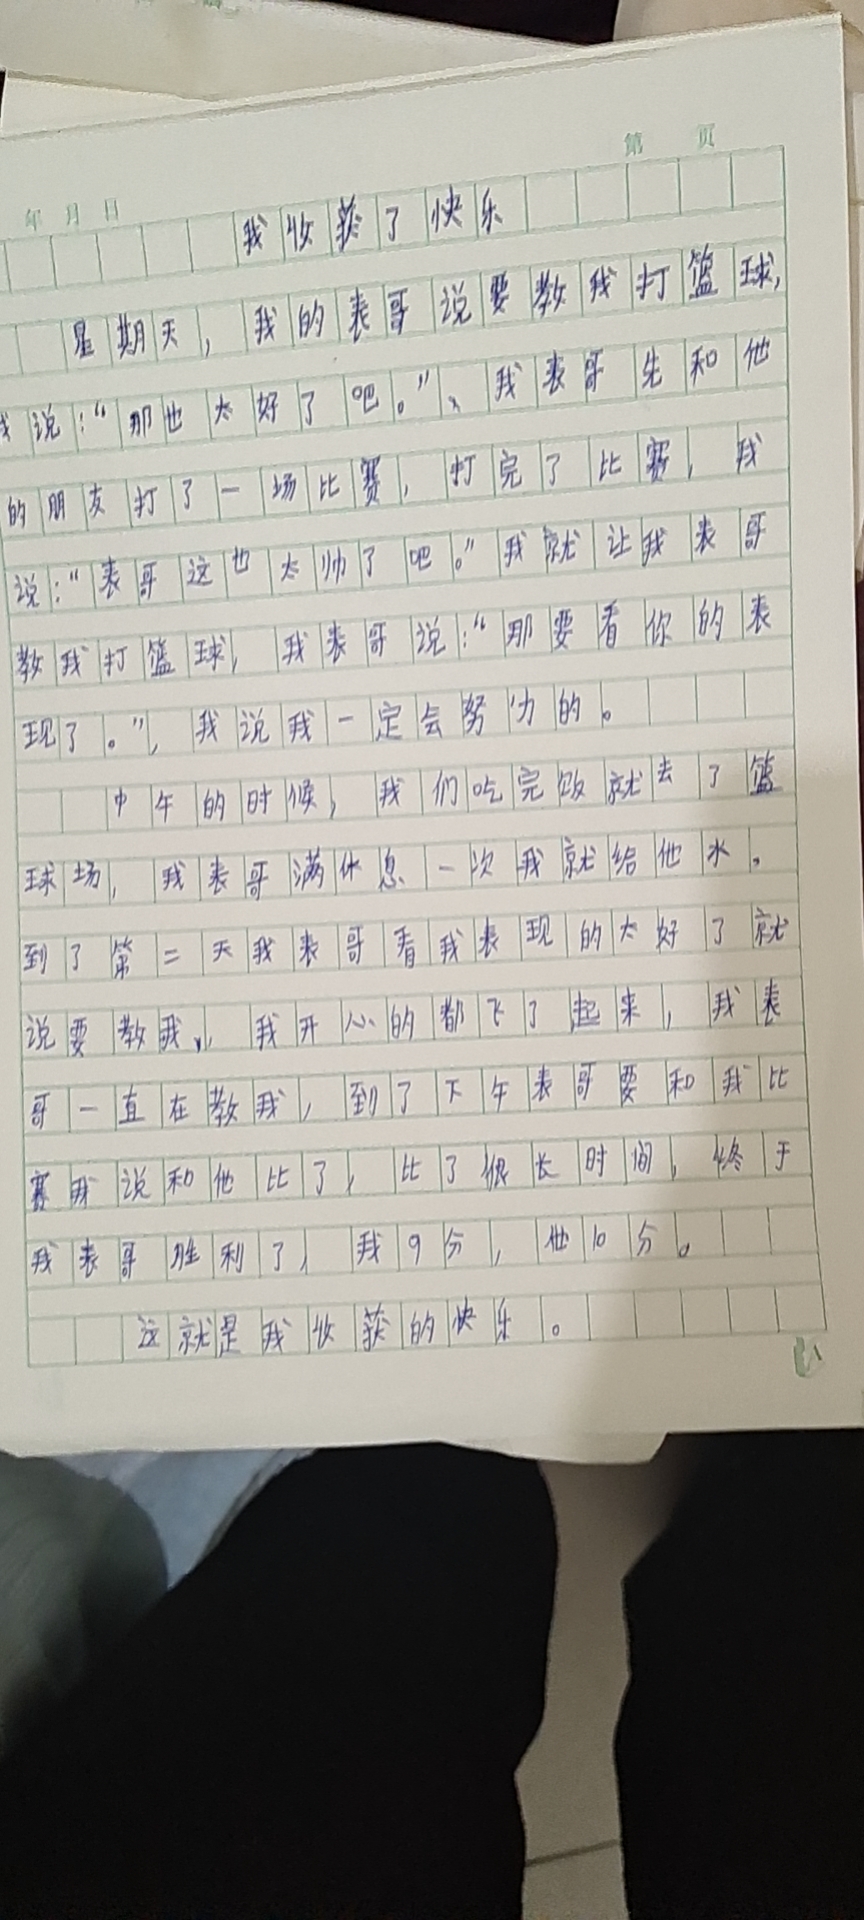 第 页
年 月 日
我收获了快乐
星期天，我的表哥说要教我打篮球，
我说：“那也太好了吧。”、我表哥先和他
的朋友打了一场比赛，打完了比赛，我
说：“表哥这也太帅了吧。”我就让我表哥
教我打篮球，我表哥说：“那要看你的表
现了。”，我说我一定会努力的。
中午的时候，我们吃完饭就去了篮
球场，我表哥满休息一次我就给他水。
到了第二天我表哥看我表现的太好了就
说要教我，我开心的都飞了起来，我表
哥一直在教我，到了下午表哥要和我比
赛我说和他比了，比了很长时间，终于
我表哥胜利了，我9分，他10分。
这就是我收获的快乐。